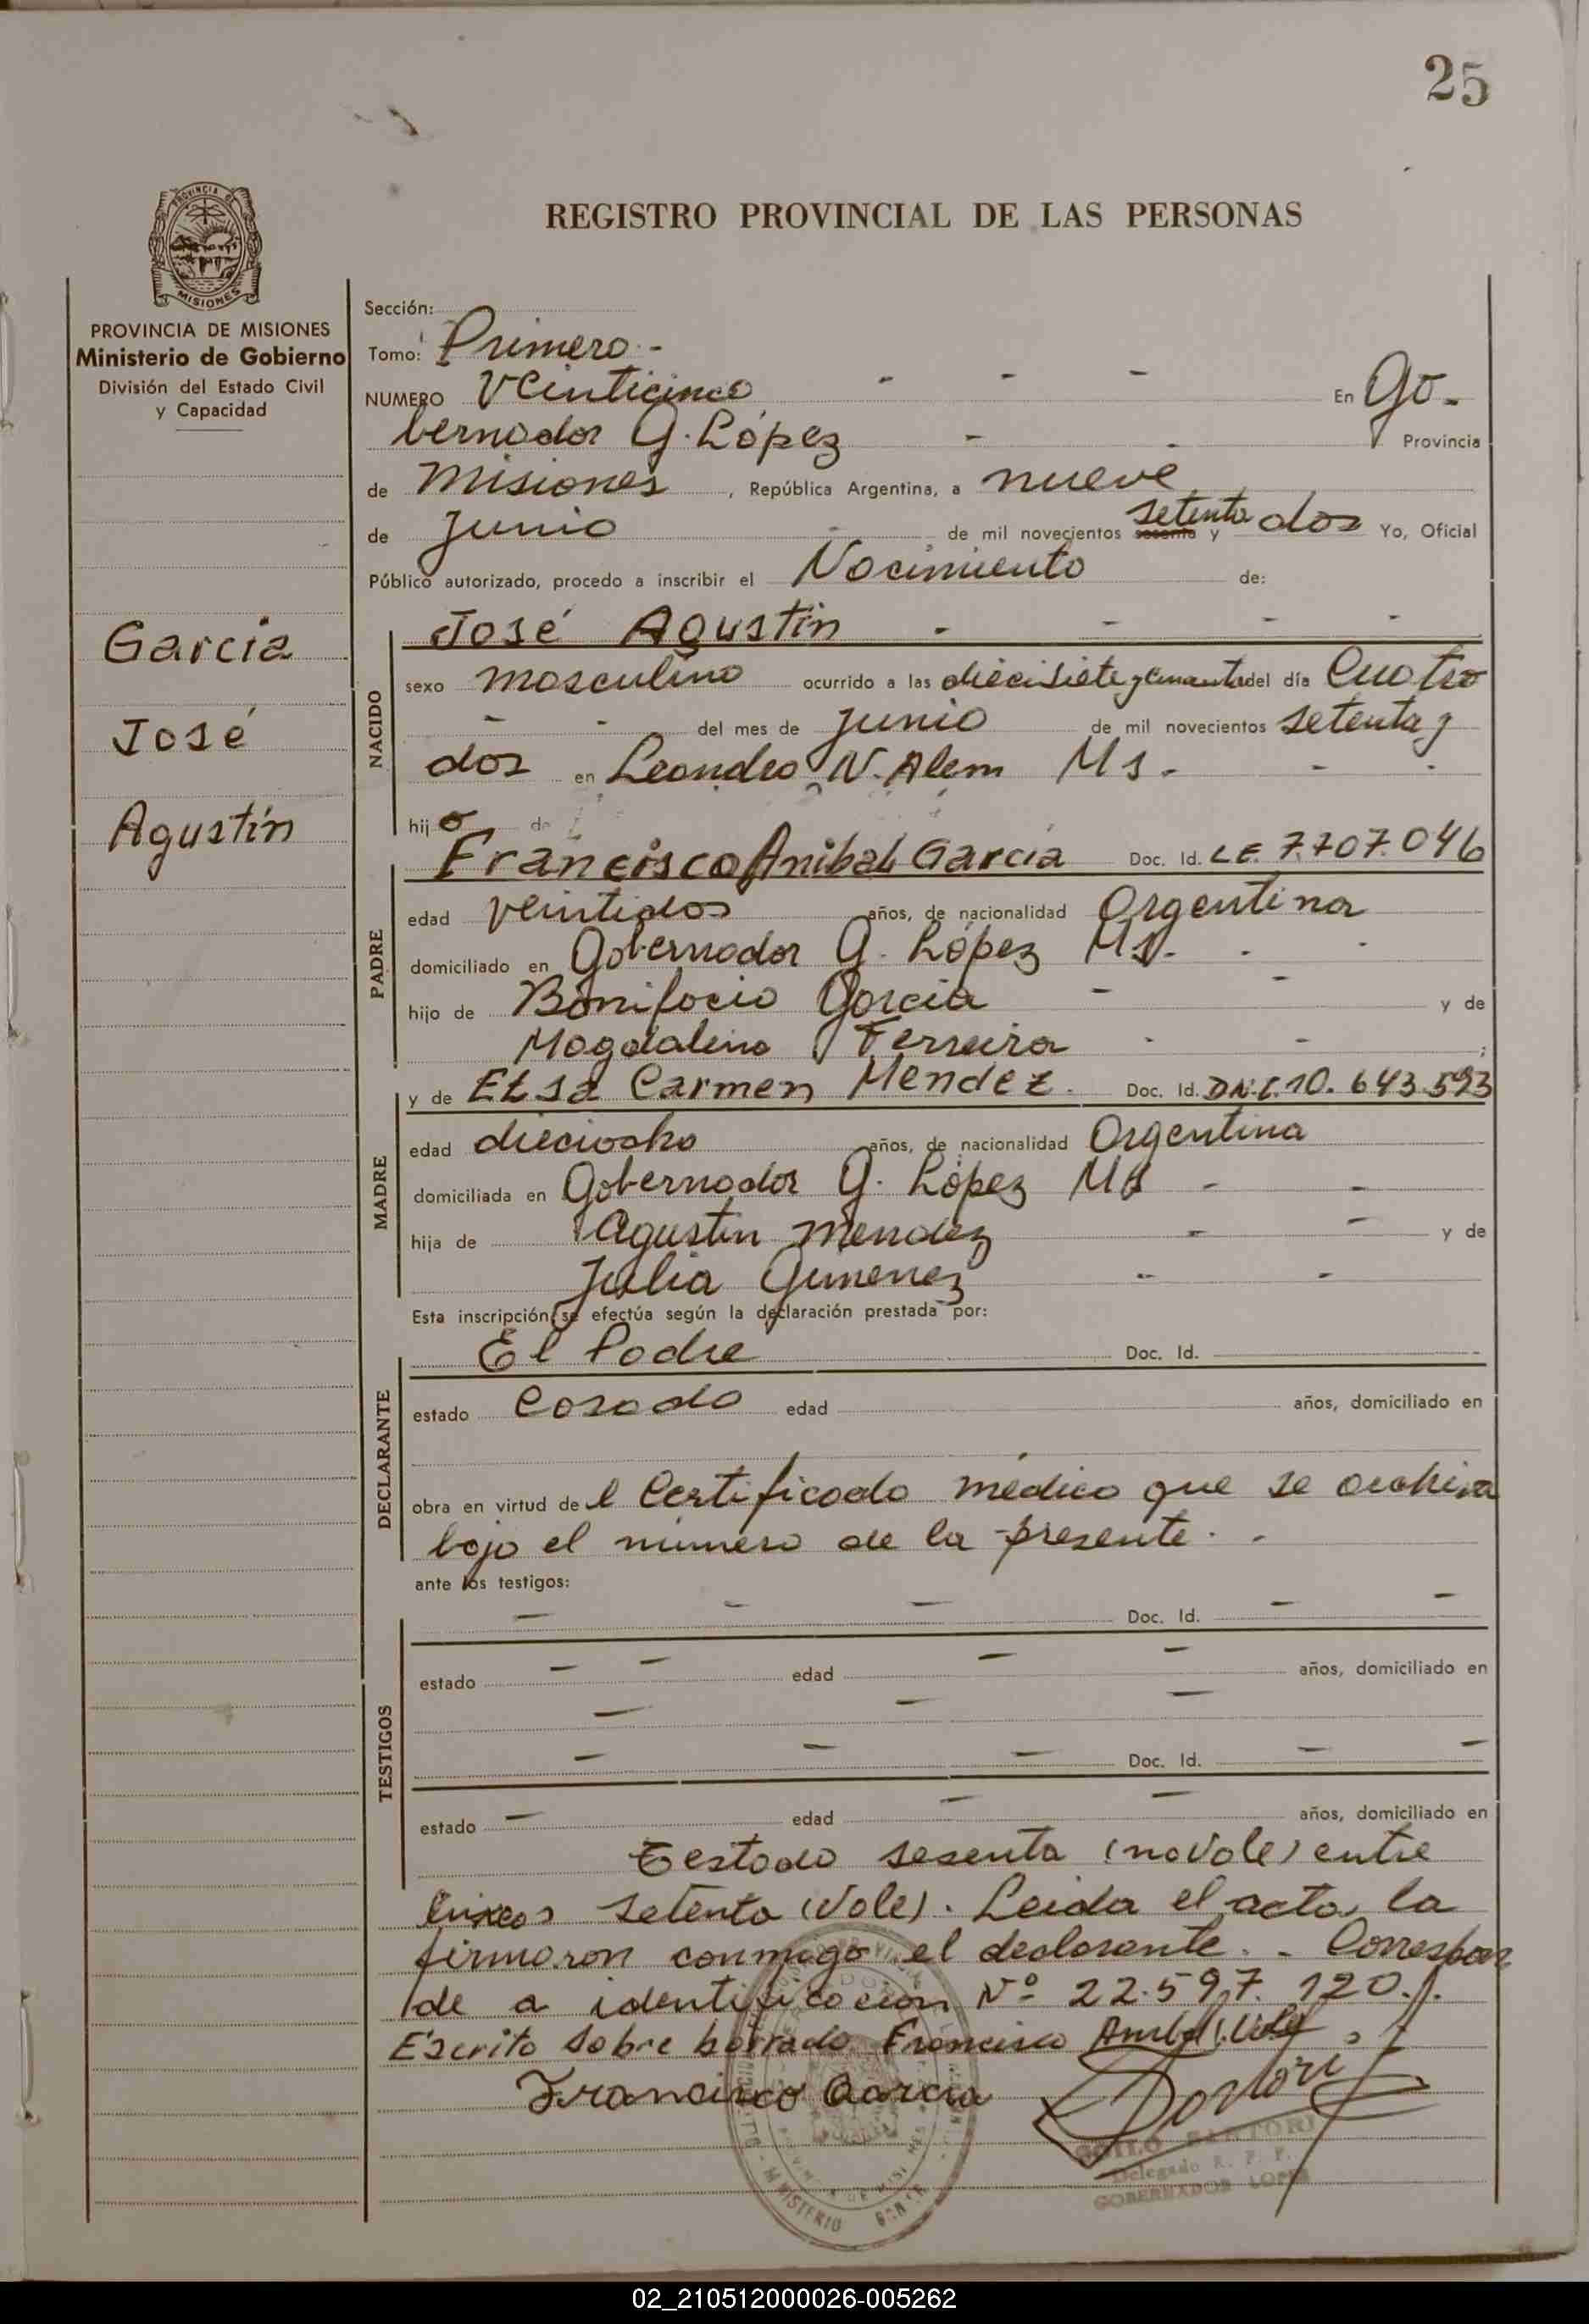 25
REGISTRO PROVINCIAL DE LAS PERSONAS
PROVINCIA DE
MISIONES
PROVINCIA DE MISIONES
Ministerio de Gobierno
División del Estado Civil
y Capacidad
Garcia
José
Agustín
Sección:
Tomo: Primero -
NUMERO Veinticinco - - - En Go-
bernador G. López - - Provincia
de Misiones, República Argentina, a nueve
de Junio - de mil novecientos sesenta setenta y dos Yo, Oficial
Público autorizado, procedo a inscribir el Nacimiento de:
NACIDO
José Agustín - - - -
sexo masculino ocurrido a las diecisiete y cincuenta del día Cuatro
- - del mes de Junio de mil novecientos setenta y
dos en Leandro N. Alem Ms. - -
hijo de
PADRE
Francisco Anibal Garcia Doc. Id. L.E. 7.707.046
edad veintidos años, de nacionalidad Argentina
domiciliado en Gobernador G. López Ms. - -
hijo de Bonifacio Garcia - - y de
Magdalena Ferreira - - ;
MADRE
y de Elsa Carmen Mendez. Doc. Id. D.N.I. 10.643.593
edad dieciocho años, de nacionalidad Argentina
domiciliada en Gobernador G. López Ms - -
hija de Agustin Mendez - - y de
Julia Gimenez - -
Esta inscripción se efectúa según la declaración prestada por:
DECLARANTE
El Padre Doc. Id.
estado Casado edad años, domiciliado en
obra en virtud del Certificado médico que se archiva
bajo el número de la presente. -
ante los testigos:
TESTIGOS
- - - Doc. Id. - -
estado - - edad - - años, domiciliado en
- - -
- - - Doc. Id. - -
estado - edad - - años, domiciliado en
Testado sesenta (no Vale) entre
líneas setenta (Vale). Leida el acta, la
firmaron conmigo el declarante. - Correspon
de a identificación Nº 22.597.120.
Escrito sobre borrado Francisco Anibal, Vale
Francisco Garcia
SARTORI
Delegado R. P. P.
GOBERNADOR LOPEZ
MINISTERIO
02_210512000026-005262